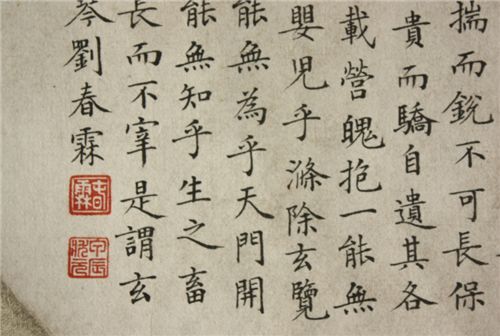 揣而銳不可長保
貴而驕自遺其各
載營魄抱一能無
嬰児乎滌除玄覽
能無為乎天門開
能無知乎生之畜
長而不宰是謂玄
劉春霖
春霖
甲辰狀元